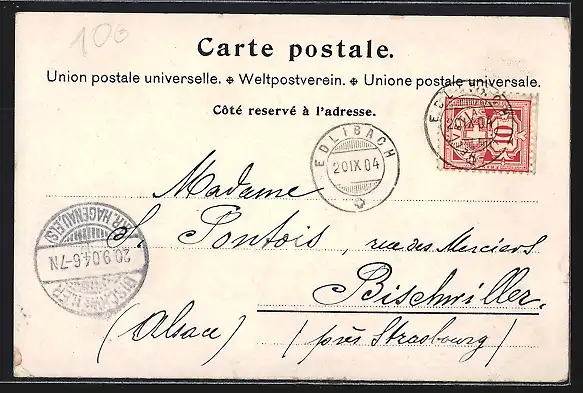 100
Carte postale.
Union postale universelle. ✻ Weltpostverein. ✻ Unione postale universale.
Côté reservé à l'adresse.
EDLIBACH
20 IX 04
EDLIBACH
20 IX 04
10
Madame
S. Pontois, rue des Merciers
Bischwiller.
(Alsace) (près Strasbourg)
BISCHWEILER
20.9.04.6-7N
(KR. HAGENAU, ELS)